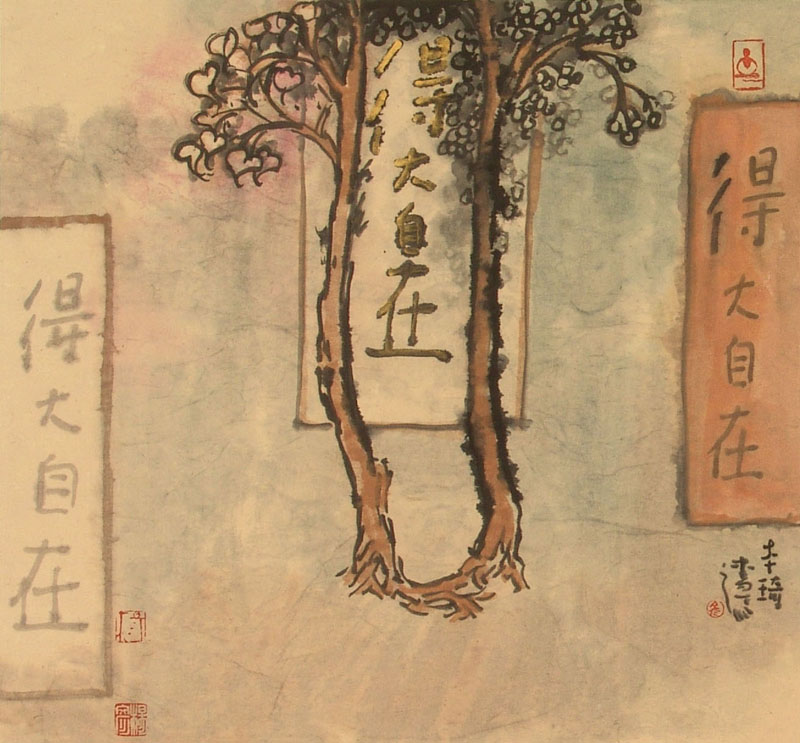 得大自在
得大自在
得大自在